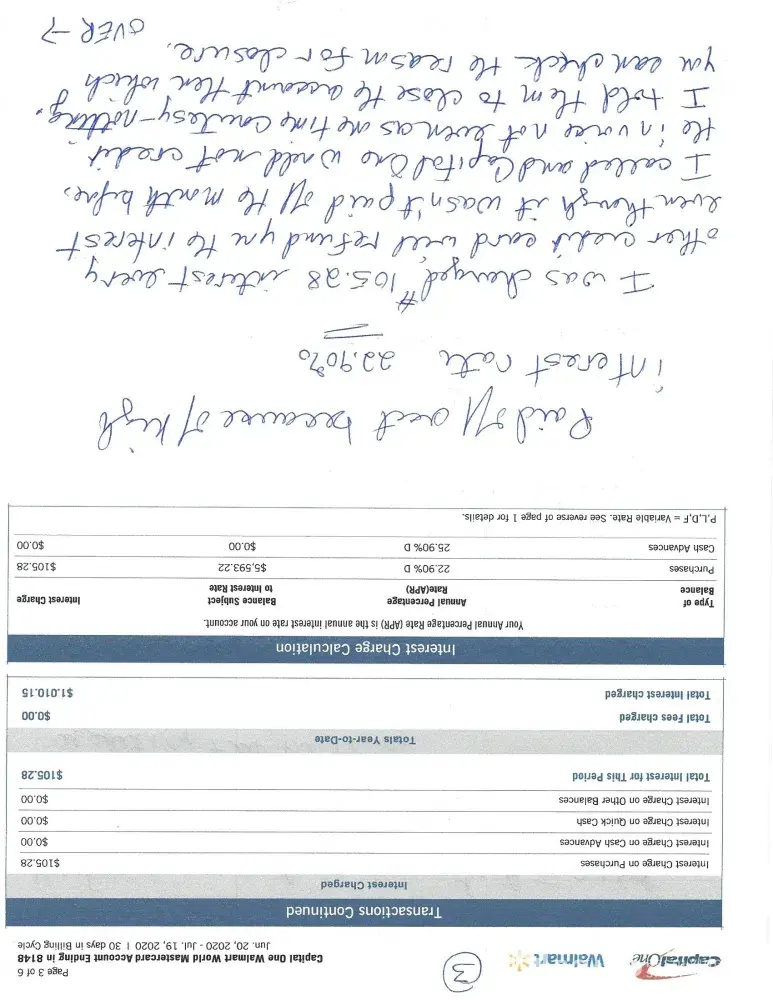 Page 3 of 6
Capital One Walmart ③ Capital One Walmart World Mastercard Account Ending in 8148
Jun. 20, 2020 - Jul. 19, 2020 | 30 days in Billing Cycle
Transactions Continued
Interest Charged
Interest Charge on Purchases $105.28
Interest Charge on Cash Advances $0.00
Interest Charge on Quick Cash $0.00
Interest Charge on Other Balances $0.00
Total Interest for This Period $105.28
Totals Year-to-Date
Total Fees charged $0.00
Total Interest charged $1,010.15
Interest Charge Calculation
Your Annual Percentage Rate (APR) is the annual interest rate on your account.
Type of Balance Annual Percentage Rate(APR) Balance Subject to Interest Rate Interest Charge
Purchases 22.90% D $5,593.22 $105.28
Cash Advances 25.90% D $0.00 $0.00
P,L,D,F = Variable Rate. See reverse of page 1 for details.
Paid off acct because of high
interest rate 22.90%
I was charged $105.28 interest every
other credit card will refund you the interest
even though it wasn't paid off the month before.
I called and Capital One would not credit
the invoice not even as one time courtesy-nothing.
I told them to close the account then which
you can check the reason for closure.
OVER →